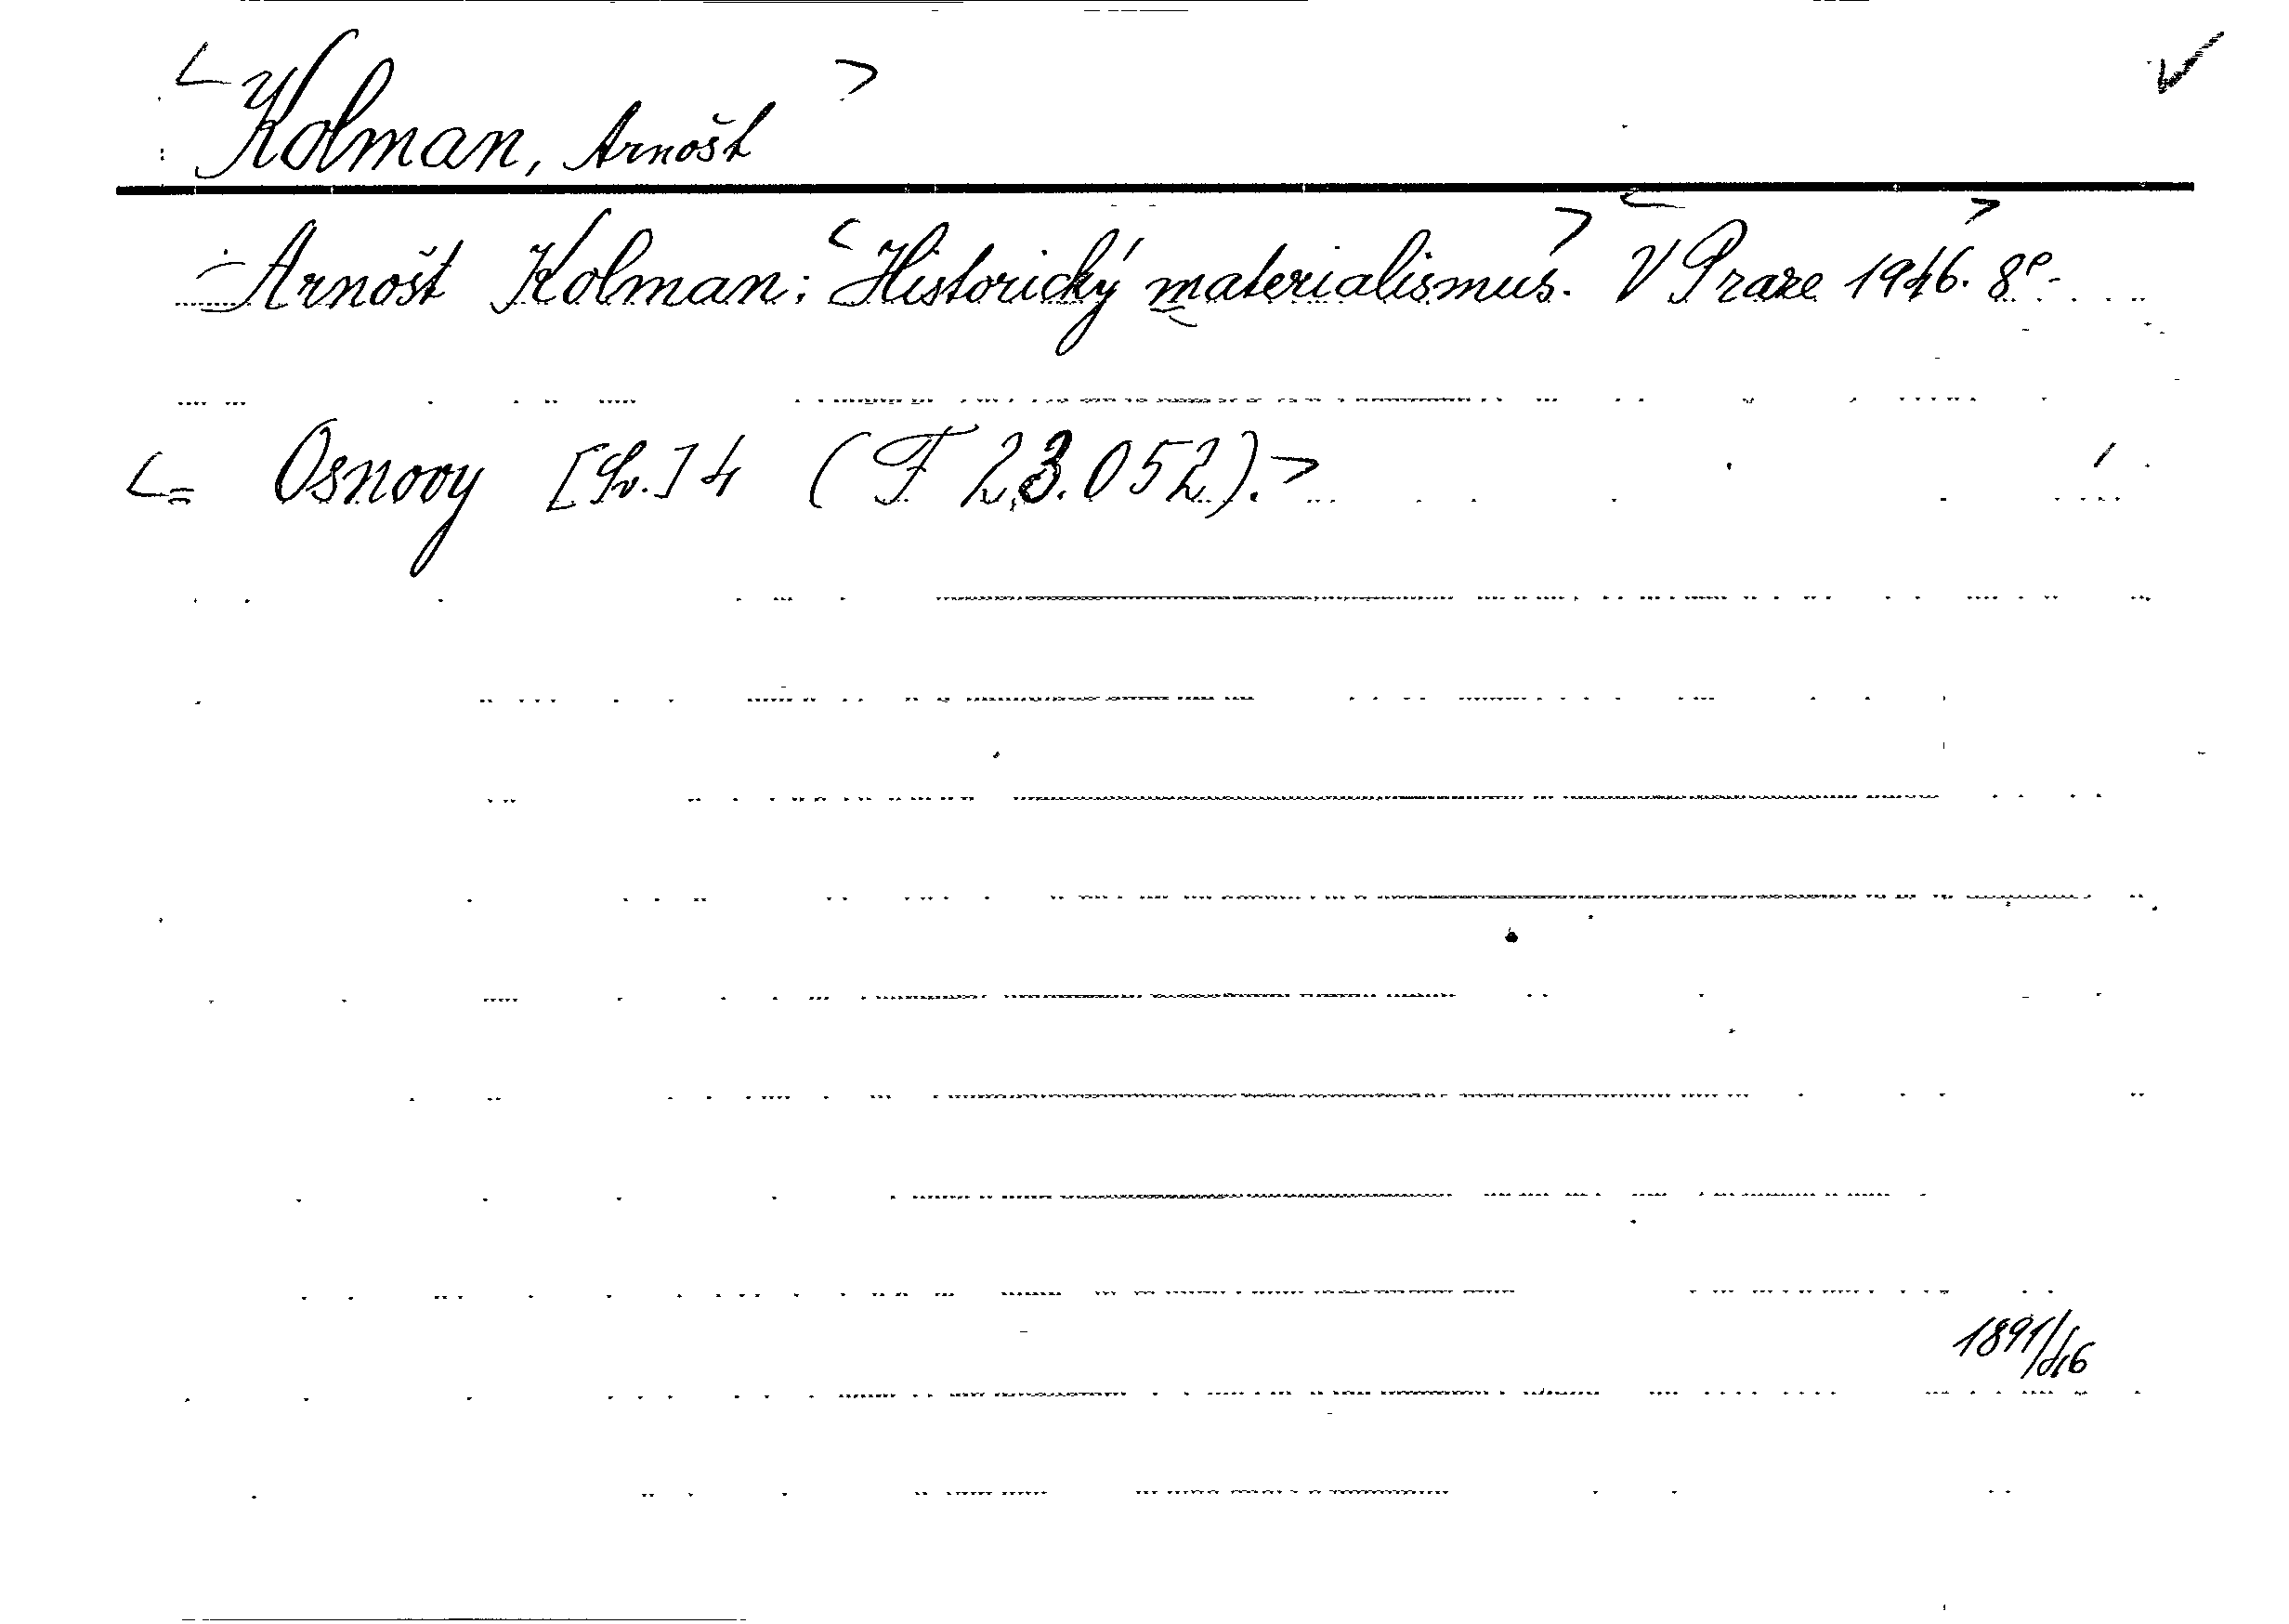 <Kolman, Arnošt>
Arnošt Kolman: <Historický materialismus>. <V Praze 1946>. 8°.
<= Osnovy [Sv.] 4 (F 23.052).>
1891/46